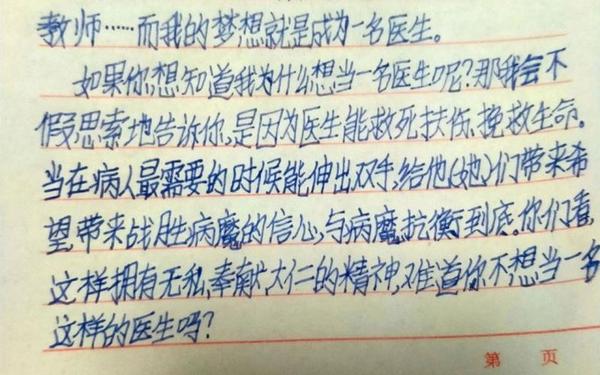 教师……而我的梦想就是成为一名医生。
如果你想知道我为什么想当一名医生呢?那我会不
假思索地告诉你,是因为医生能救死扶伤,挽救生命。
当在病人最需要的时候能伸出双手,给他(她)们带来希
望,带来战胜病魔的信心,与病魔抗衡到底。你们看,
这样拥有无私,奉献,大仁的精神,难道你不想当一名
这样的医生吗?
第 页